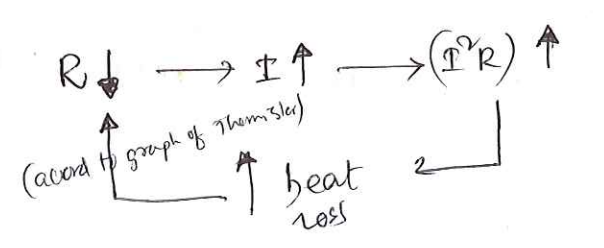 R ↓ → I ↑ → (I²R) ↑
(accord to graph of Thermister)
↑ heat
loss